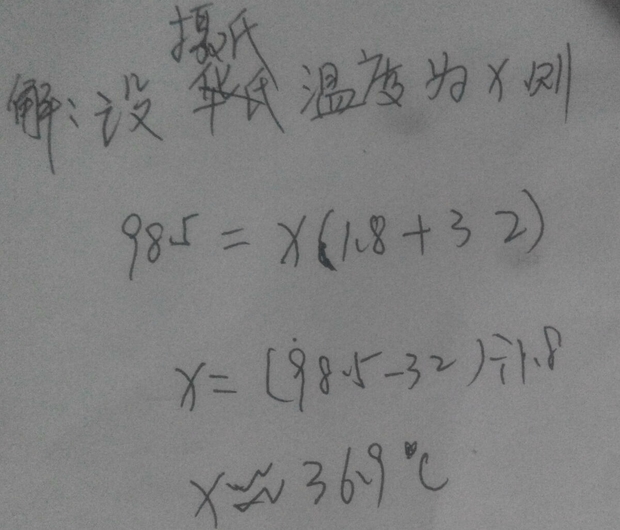 摄氏
解：设华氏温度为x则
98.5 = x(1.8+32)
x=(98.5-32)÷1.8
x≈36.9℃